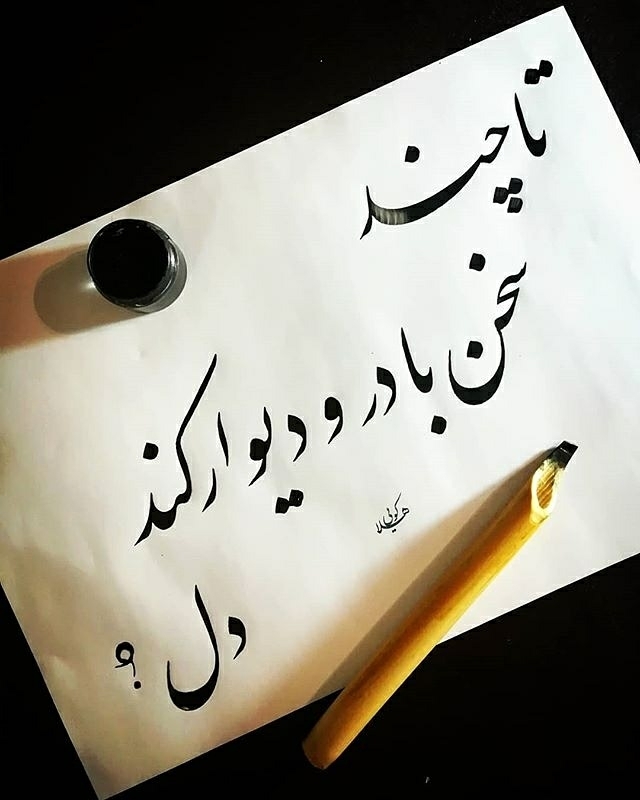 تا چند
سخن با در و دیوار کند
دل ؟